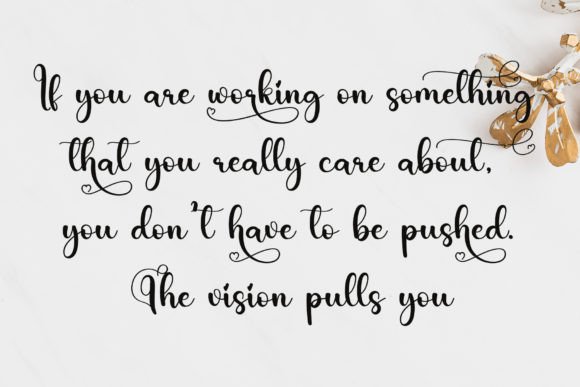 If you are working on something
that you really care about,
you don't have to be pushed.
The vision pulls you